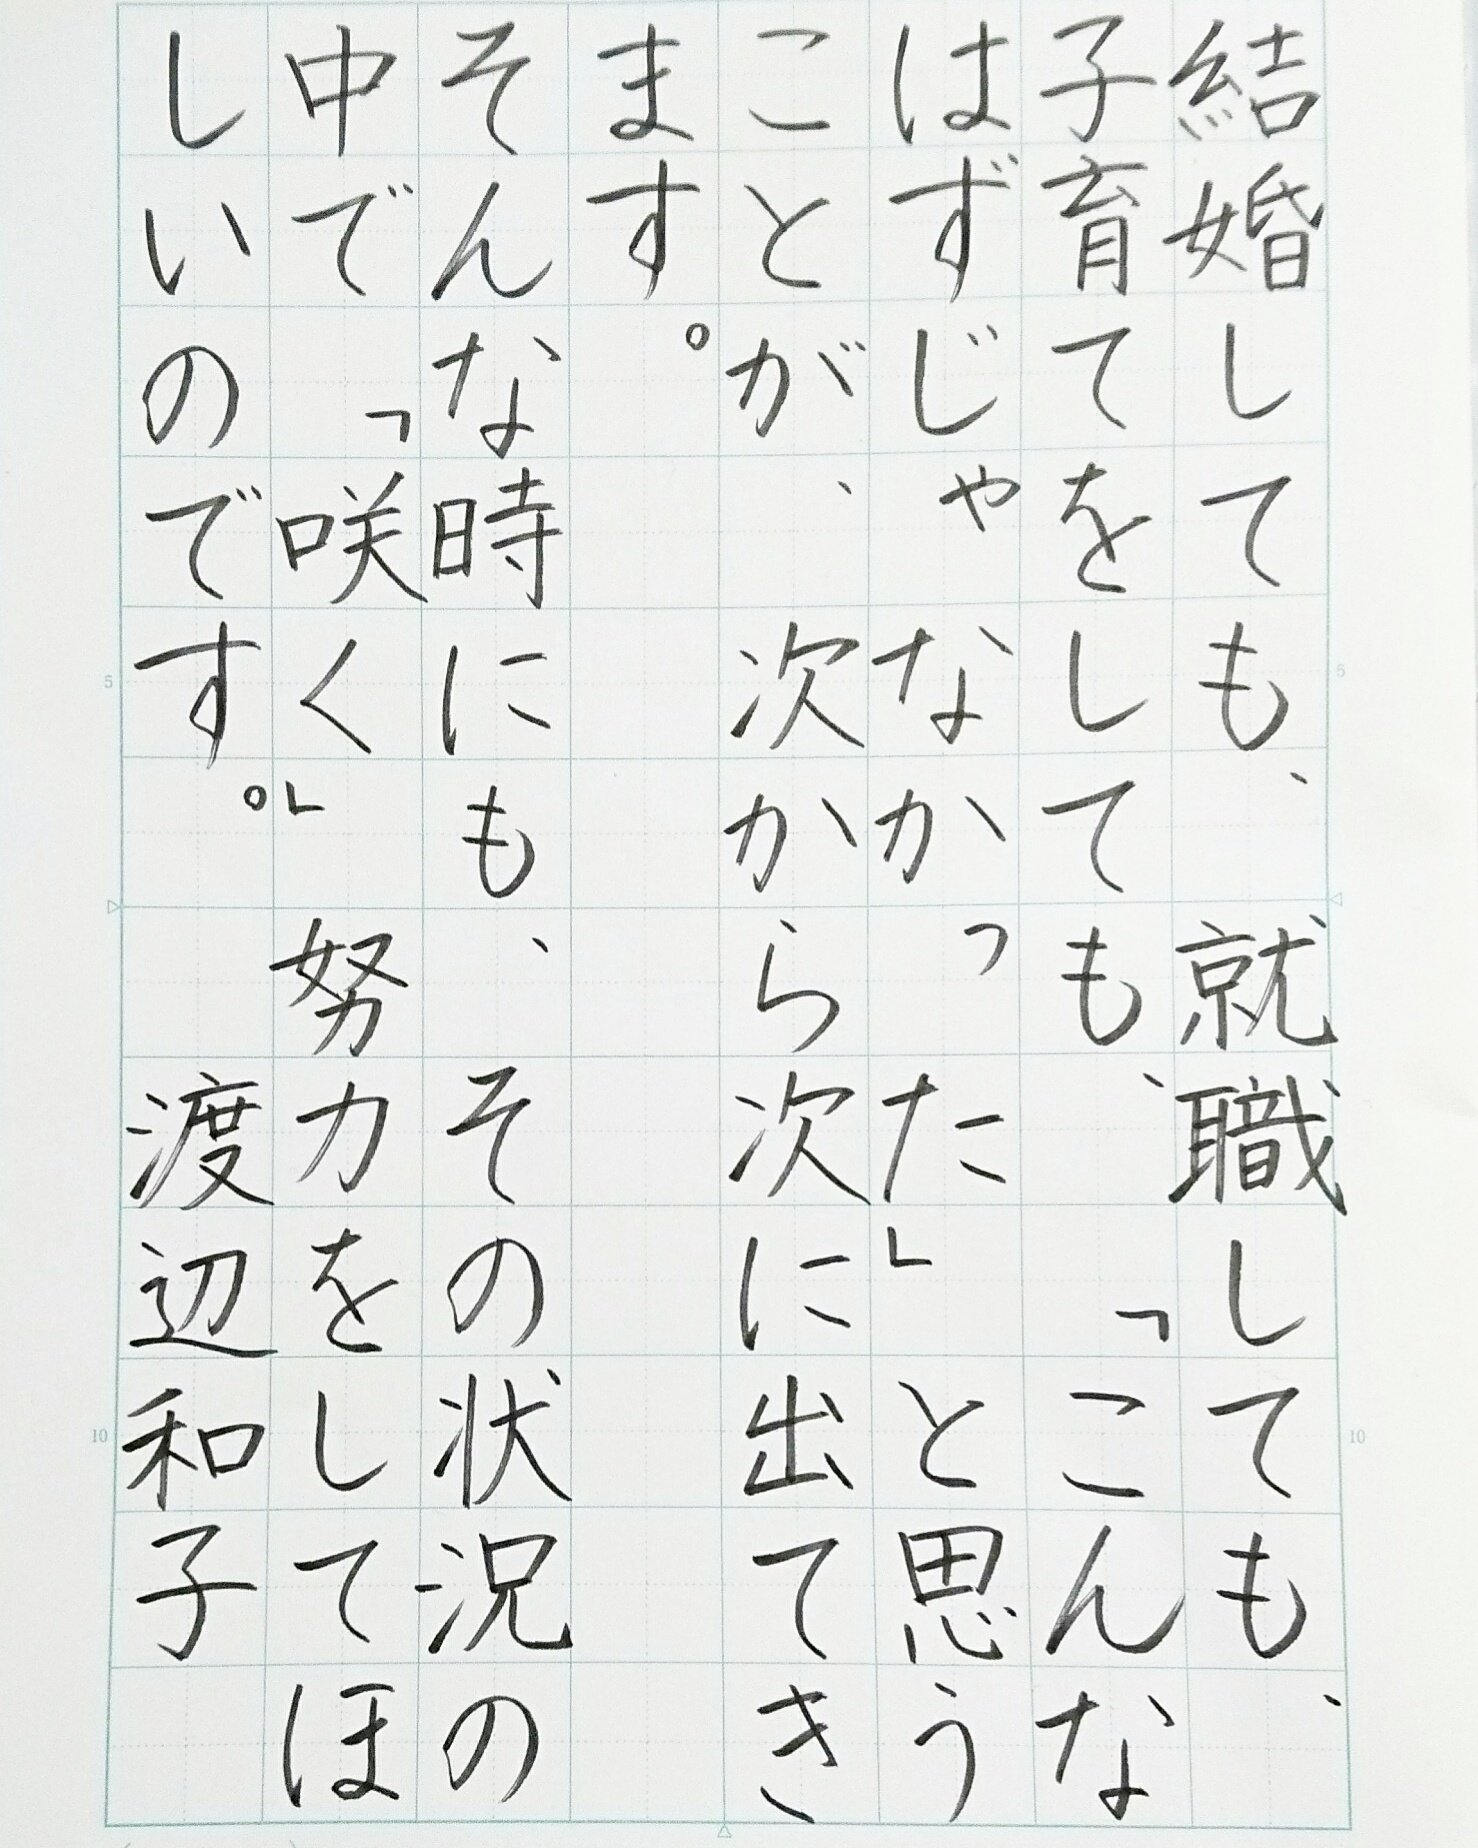 結婚しても、就職しても、
子育てをしても、「こんな
はずじゃなかった」と思う
ことが、次から次に出てき
ます。
そんな時にも、その状況の
中で「咲く」努力をしてほ
しいのです。渡辺和子
5
5
10
10